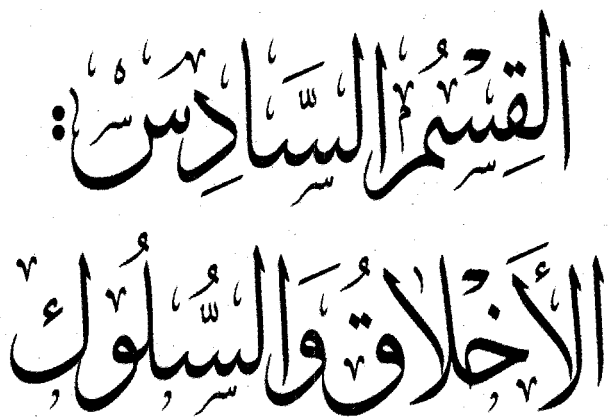 القِسْمُ السَّادِس:
الأَخْلاقُ وَالسُّلُوك